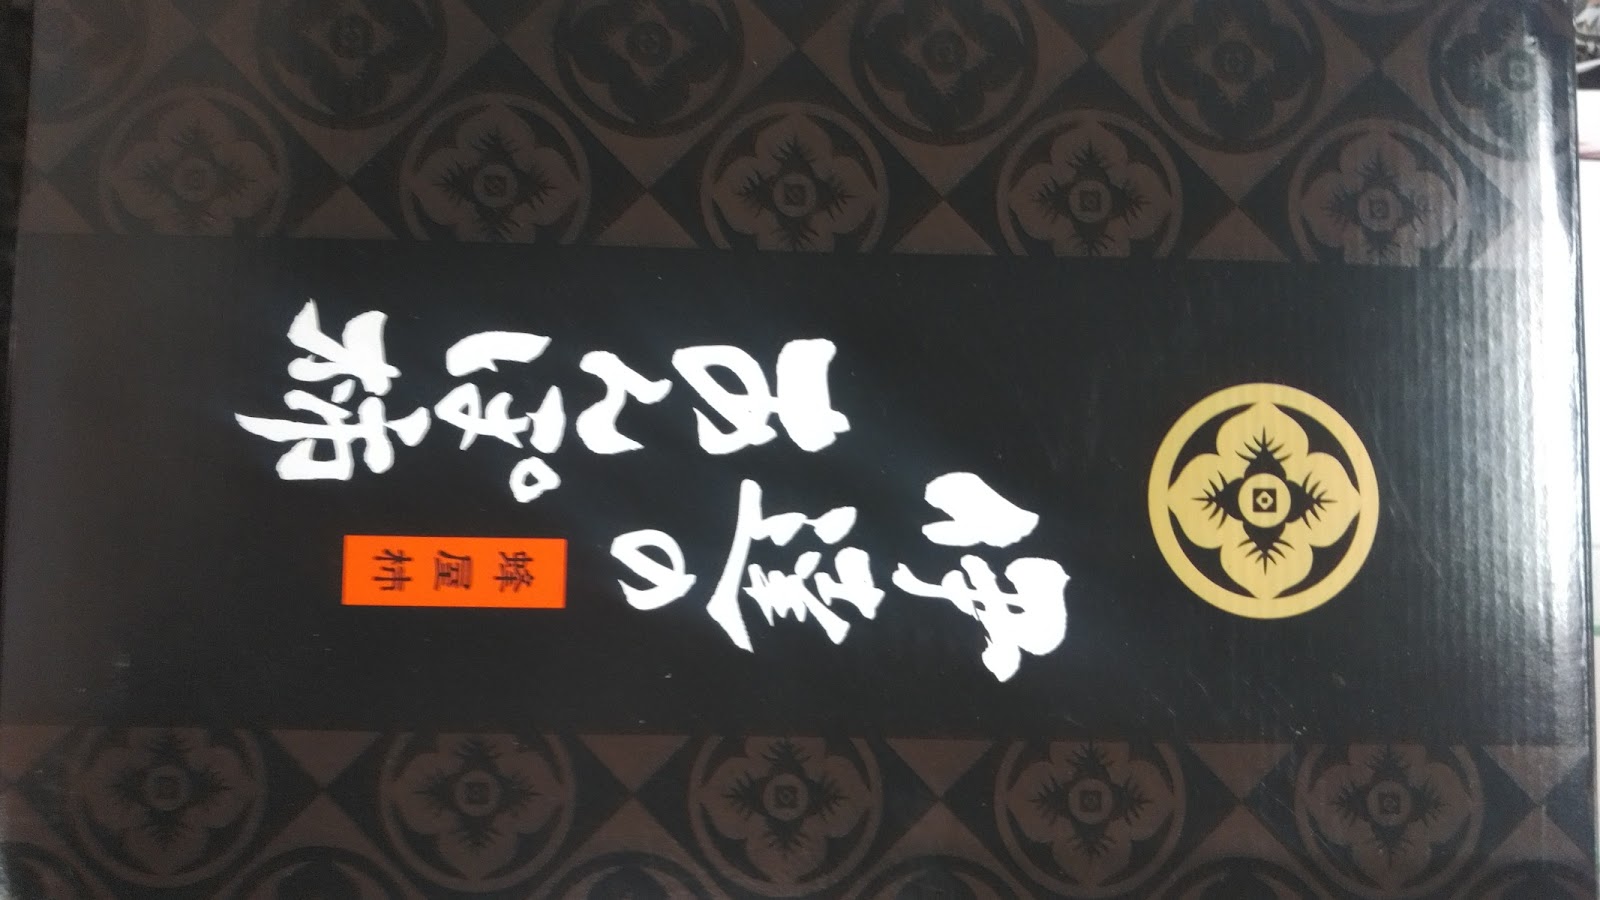 伊達の
あんぽ柿
蜂屋柿